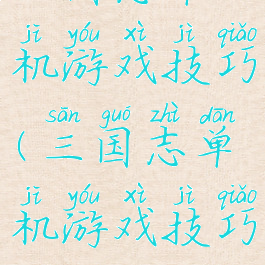 jī yóu xì jì qiǎo
机游戏技巧
sān guó zhì dān
(三国志单
jī yóu xì jì qiǎo
机游戏技巧